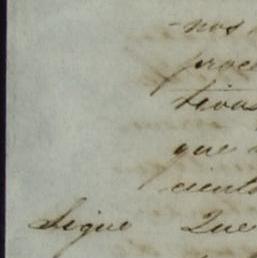 -nos
proce
tivos
que
ciento
Sigue Que